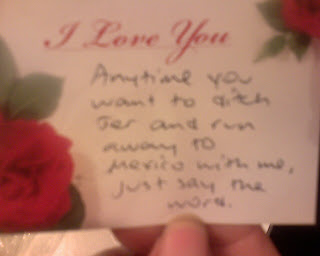 I Love You
Anytime you
want to ditch
Jer and run
away to
Mexico with me,
just say the
word.